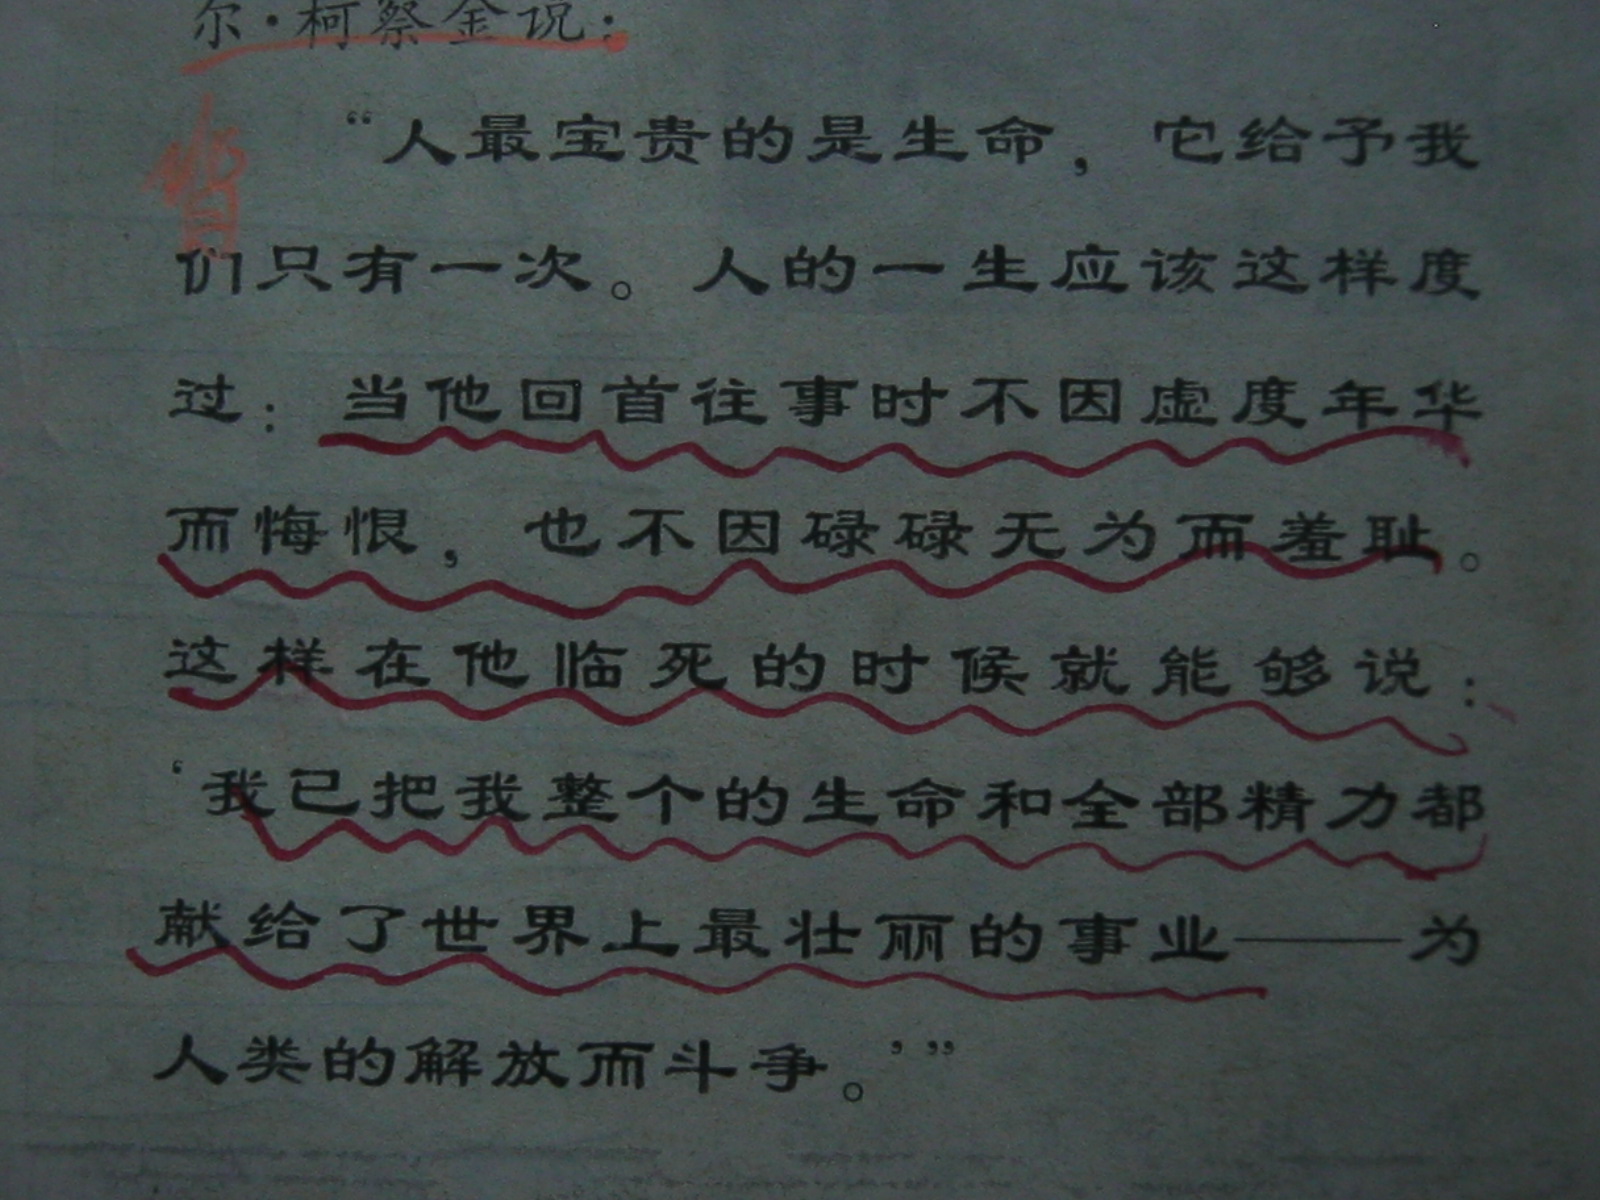 尔·柯察金说：
背
“人最宝贵的是生命，它给予我
们只有一次。人的一生应该这样度
过：当他回首往事时不因虚度年华
而悔恨，也不因碌碌无为而羞耻。
这样在他临死的时候就能够说：
‘我已把我整个的生命和全部精力都
献给了世界上最壮丽的事业——为
人类的解放而斗争。’”